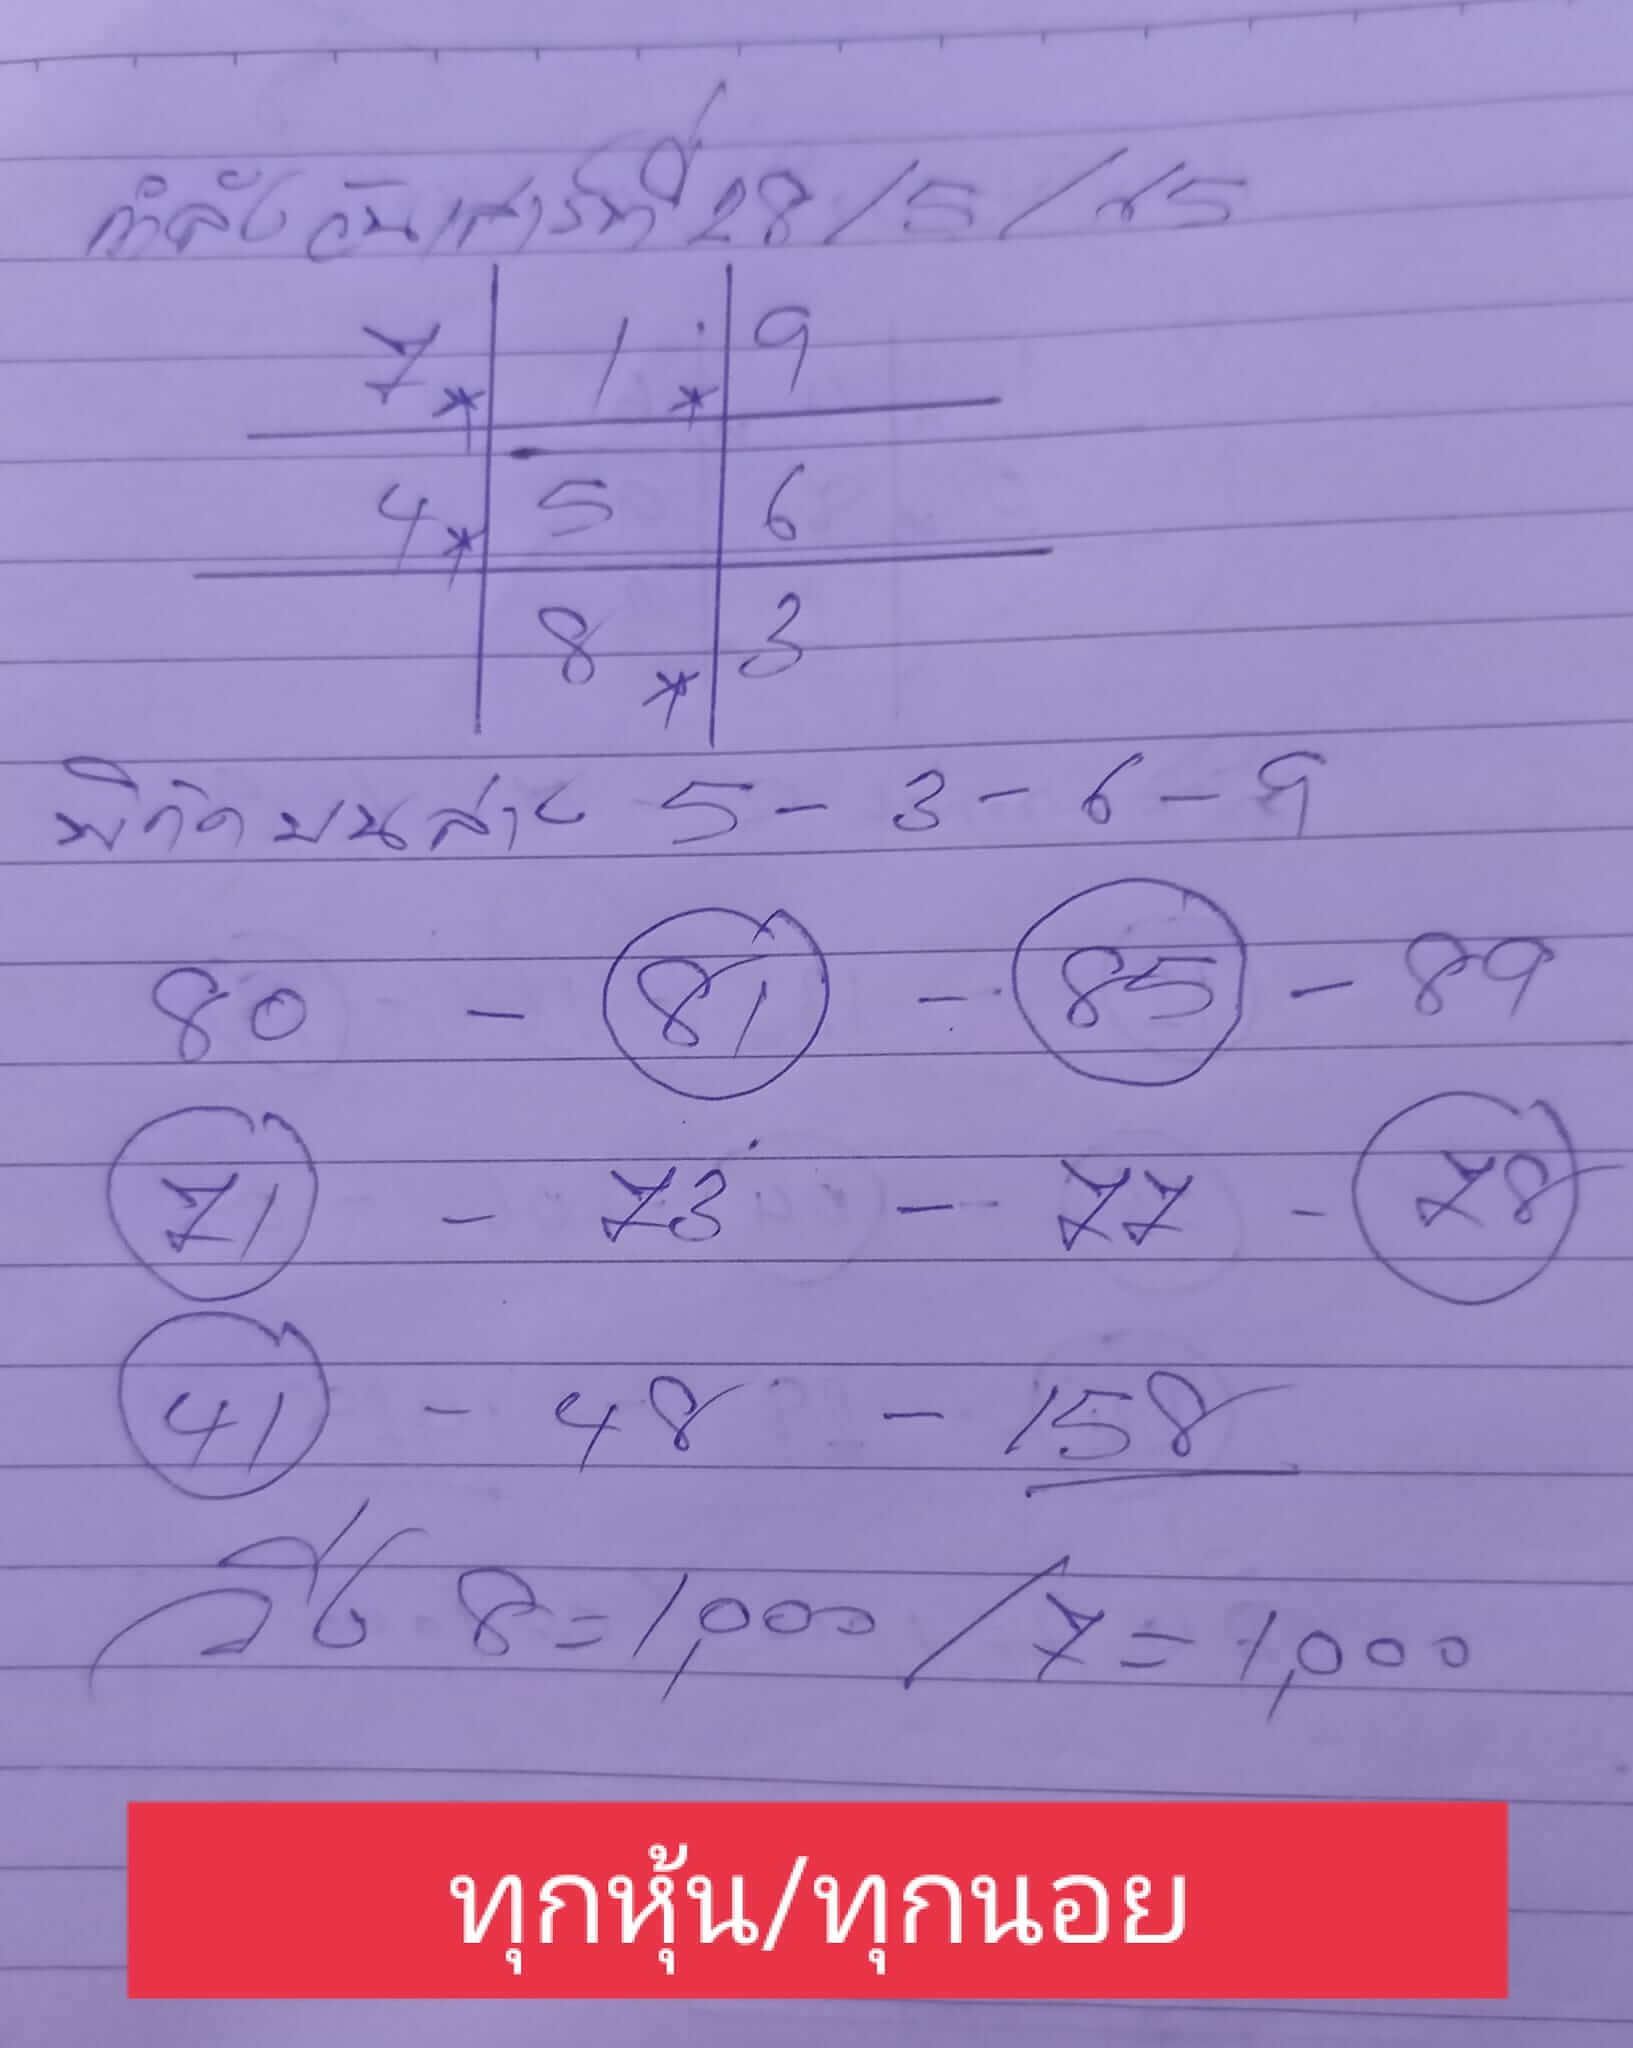 กำลังวันเสาร์ที่ 28/5/65
7 1 9
4 5 6
8 3
พิกัดบนล่าง 5-3-6-9
80 - 81 - 85 - 89
71 - 73 - 77 - 78
41 - 48 - 158
วิ่ง 8=1,000/7=1,000
ทุกหุ้น/ทุกนอย